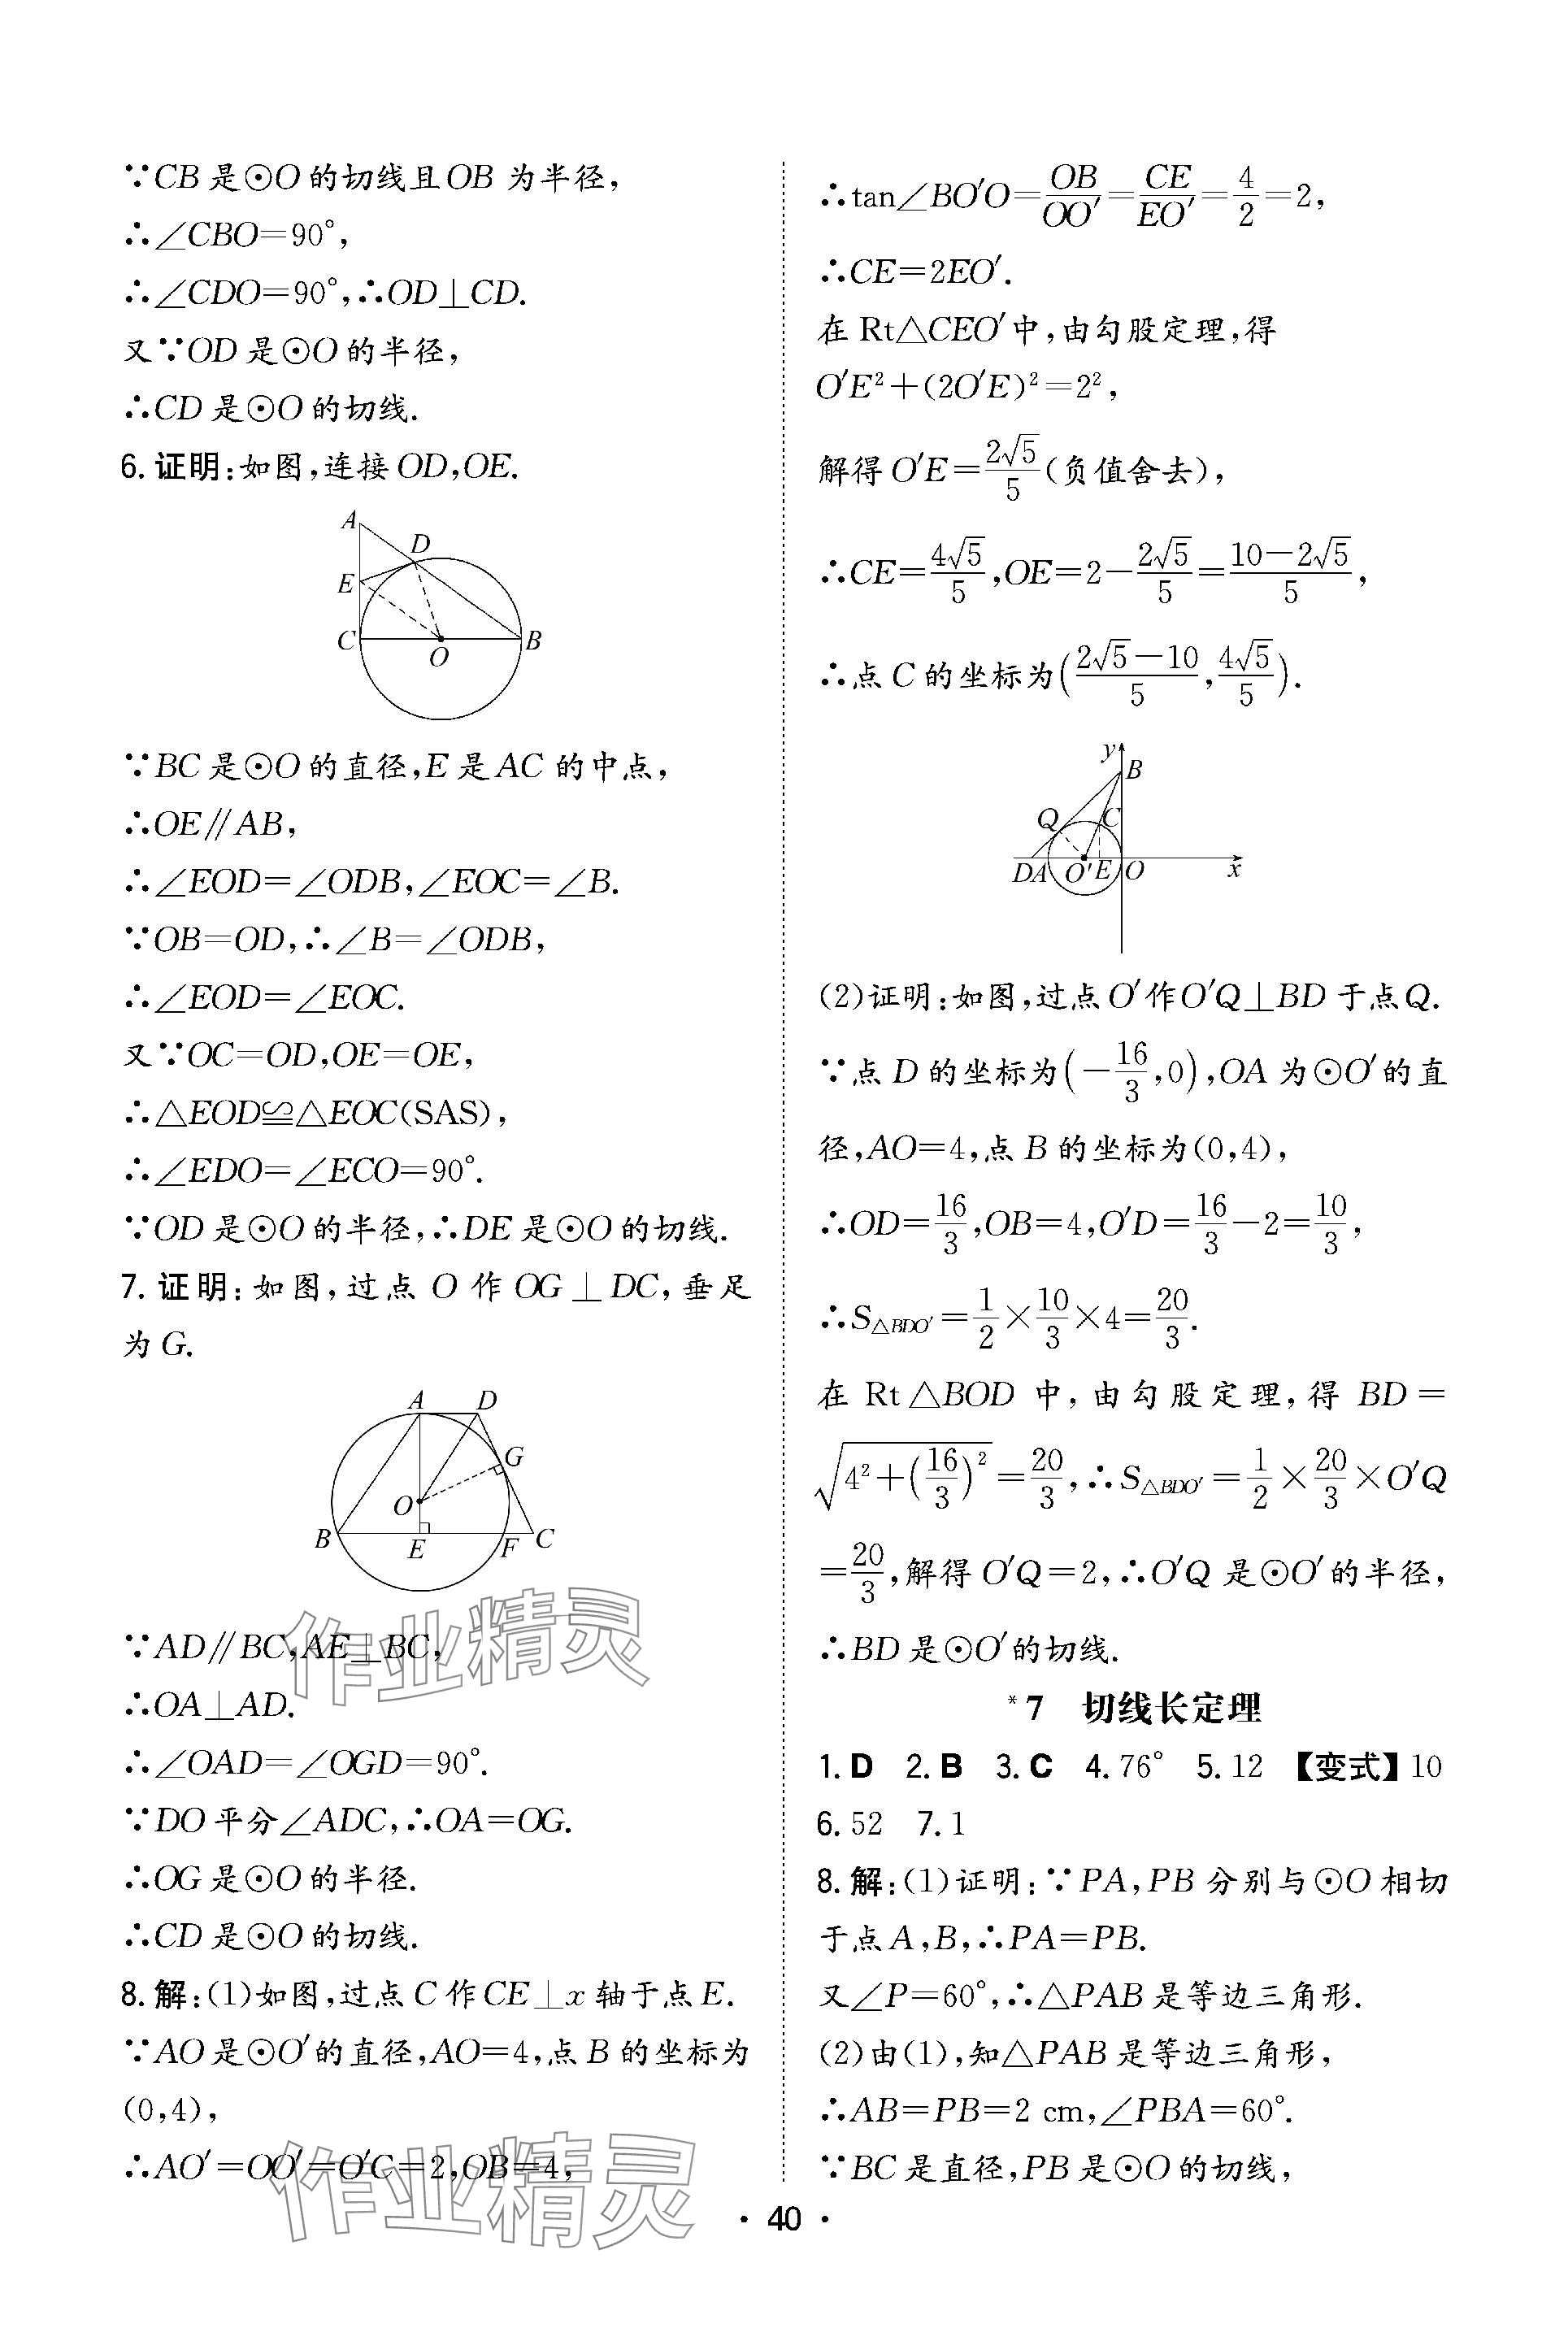 ∵CB是⊙O的切线且OB为半径,
∴∠CBO=90°,
∴∠CDO=90°,∴OD⊥CD.
又∵OD是⊙O的半径,
∴CD是⊙O的切线.
6. 证明:如图,连接OD,OE.
A
D
E
C
O
B
∵BC是⊙O的直径,E是AC的中点,
∴OE∥AB,
∴∠EOD=∠ODB,∠EOC=∠B.
∵OB=OD,∴∠B=∠ODB,
∴∠EOD=∠EOC.
又∵OC=OD,OE=OE,
∴△EOD≌△EOC(SAS),
∴∠EDO=∠ECO=90°.
∵OD是⊙O的半径,∴DE是⊙O的切线.
7. 证明:如图,过点O作OG⊥DC,垂足
为G.
A D
G
O
B E F C
∵AD∥BC,AE⊥BC,
∴OA⊥AD.
∴∠OAD=∠OGD=90°.
∵DO平分∠ADC,∴OA=OG.
∴OG是⊙O的半径.
∴CD是⊙O的切线.
8. 解:(1)如图,过点C作CE⊥x轴于点E.
∵AO是⊙O′的直径,AO=4,点B的坐标为
(0,4),
∴AO′=OO′=O′C=2,OB=4,
∴tan∠BO′O=OB/OO′=CE/EO′=4/2=2,
∴CE=2EO′.
在Rt△CEO′中,由勾股定理,得
O′E²+(2O′E)²=2²,
解得O′E=2√5/5(负值舍去),
∴CE=4√5/5,OE=2-2√5/5=(10-2√5)/5,
∴点C的坐标为((2√5-10)/5,4√5/5).
y
B
Q C
DA O′ E O x
(2)证明:如图,过点O′作O′Q⊥BD于点Q.
∵点D的坐标为(-16/3,0),OA为⊙O′的直
径,AO=4,点B的坐标为(0,4),
∴OD=16/3,OB=4,O′D=16/3-2=10/3,
∴S△BDO′=1/2×10/3×4=20/3.
在Rt△BOD中,由勾股定理,得BD=
√(4²+(16/3)²)=20/3,∴S△BDO′=1/2×20/3×O′Q
=20/3,解得O′Q=2,∴O′Q是⊙O′的半径,
∴BD是⊙O′的切线.
*7 切线长定理
1. D 2. B 3. C 4. 76° 5. 12 【变式】10
6. 52 7. 1
8. 解:(1)证明:∵PA,PB分别与⊙O相切
于点A,B,∴PA=PB.
又∠P=60°,∴△PAB是等边三角形.
(2)由(1),知△PAB是等边三角形,
∴AB=PB=2 cm,∠PBA=60°.
∵BC是直径,PB是⊙O的切线,
作业精灵
作业精灵
· 40 ·